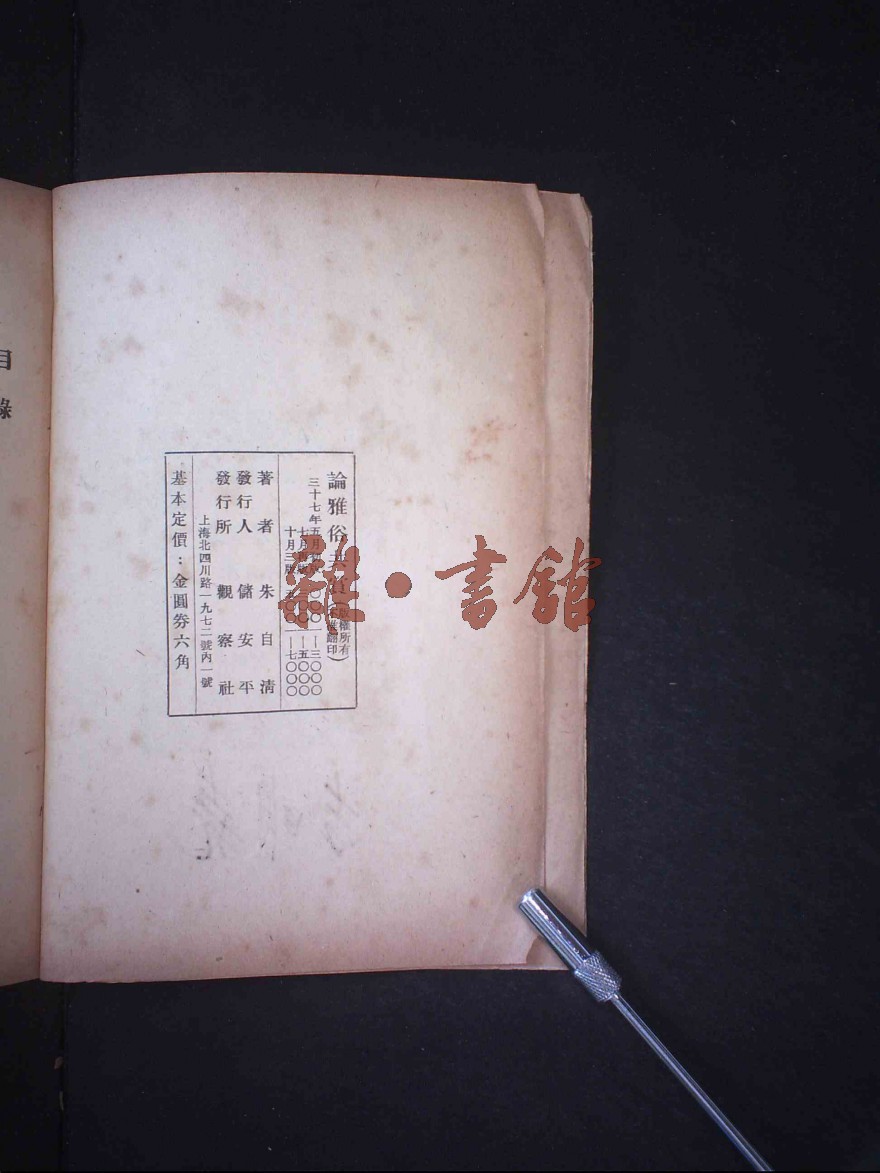 論雅俗共賞
版權所有
翻印
三十七年五月初版 三〇〇〇
七月再版 三〇〇一—五〇〇〇
十月三版 五〇〇一—七〇〇〇
著者 朱自清
發行人 儲安平
發行所 觀察社
上海北四川路一九七二號內一號
基本定價：金圓券六角
目錄
雜・書館